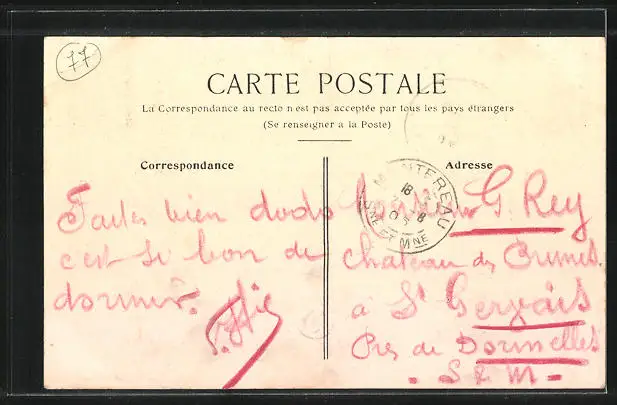 77
CARTE POSTALE
La Correspondance au recto n'est pas acceptée par tous les pays étrangers
(Se renseigner a la Poste)
Correspondance
Faites bien dodo
c'est si bon de
dormir.
Adresse
Monsieur G. Rey
chateau des
à St Gervais
Près de Dormelles
- S & M -
MONTEREAU
18
8
SNE ET MNE